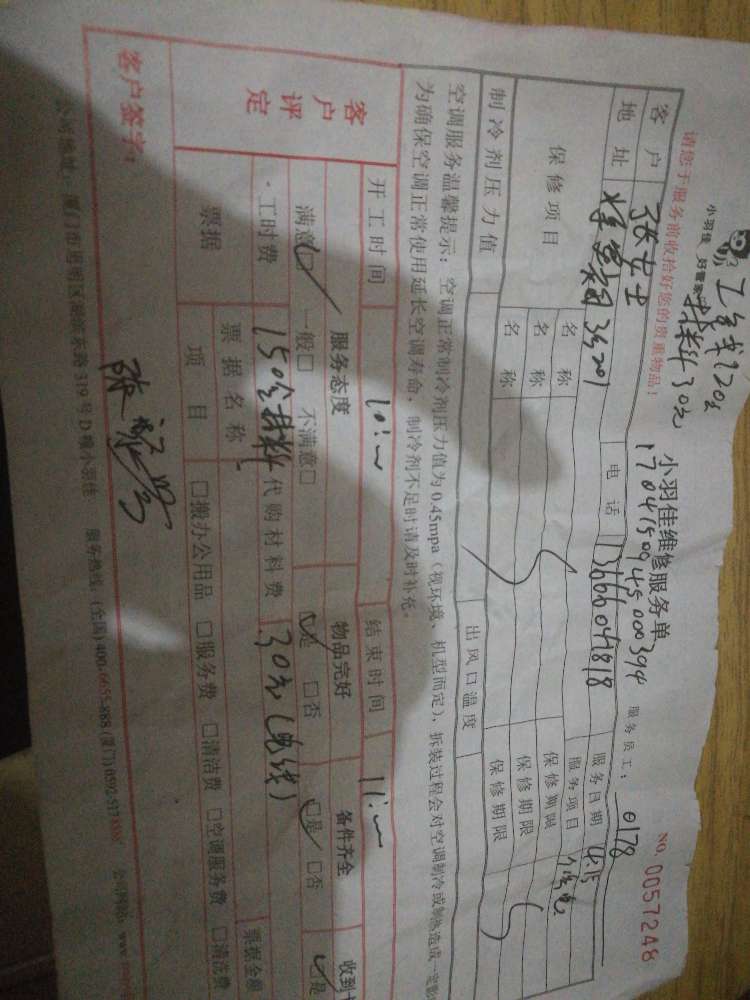 小羽佳 好管家
工时费120元
材料30元
请您于服务前收拾好您的贵重物品!
小羽佳维修服务单
NO. 0057248
17041509450000394
服务员工: 0178
客户 张女士 电话 13666041818 服务日期 4.15
地址 3#201 服务项目 修电
保修项目 名称 保修期限
名称 保修期限
名称 保修期限
制冷剂压力值 出风口温度
空调服务温馨提示:空调正常制冷剂压力值为0.45mpa(视环境、机型而定),拆装过程会对空调制冷或制热造成一定
为确保空调正常使用延长空调寿命,制冷剂不足时请及时补充。
开工时间 10: 结束时间 11:
客户评定 服务态度 物品完好 备件齐全 收到
满意☑ 一般□ 不满意□ ☑是 □否 ☑是 □否 ☑是
工时费 150含材料 代购材料费 30元(电线)
票据 票据名称 票据金额
项目 □搬办公用品 □服务费 □清洁费 □空调服务费 □清洗费
客户签字:
厦门市思明区湖滨东路319号D幢小羽佳 服务热线:(全国)400-6655-888 (厦门)0592-517 公司网站:www.